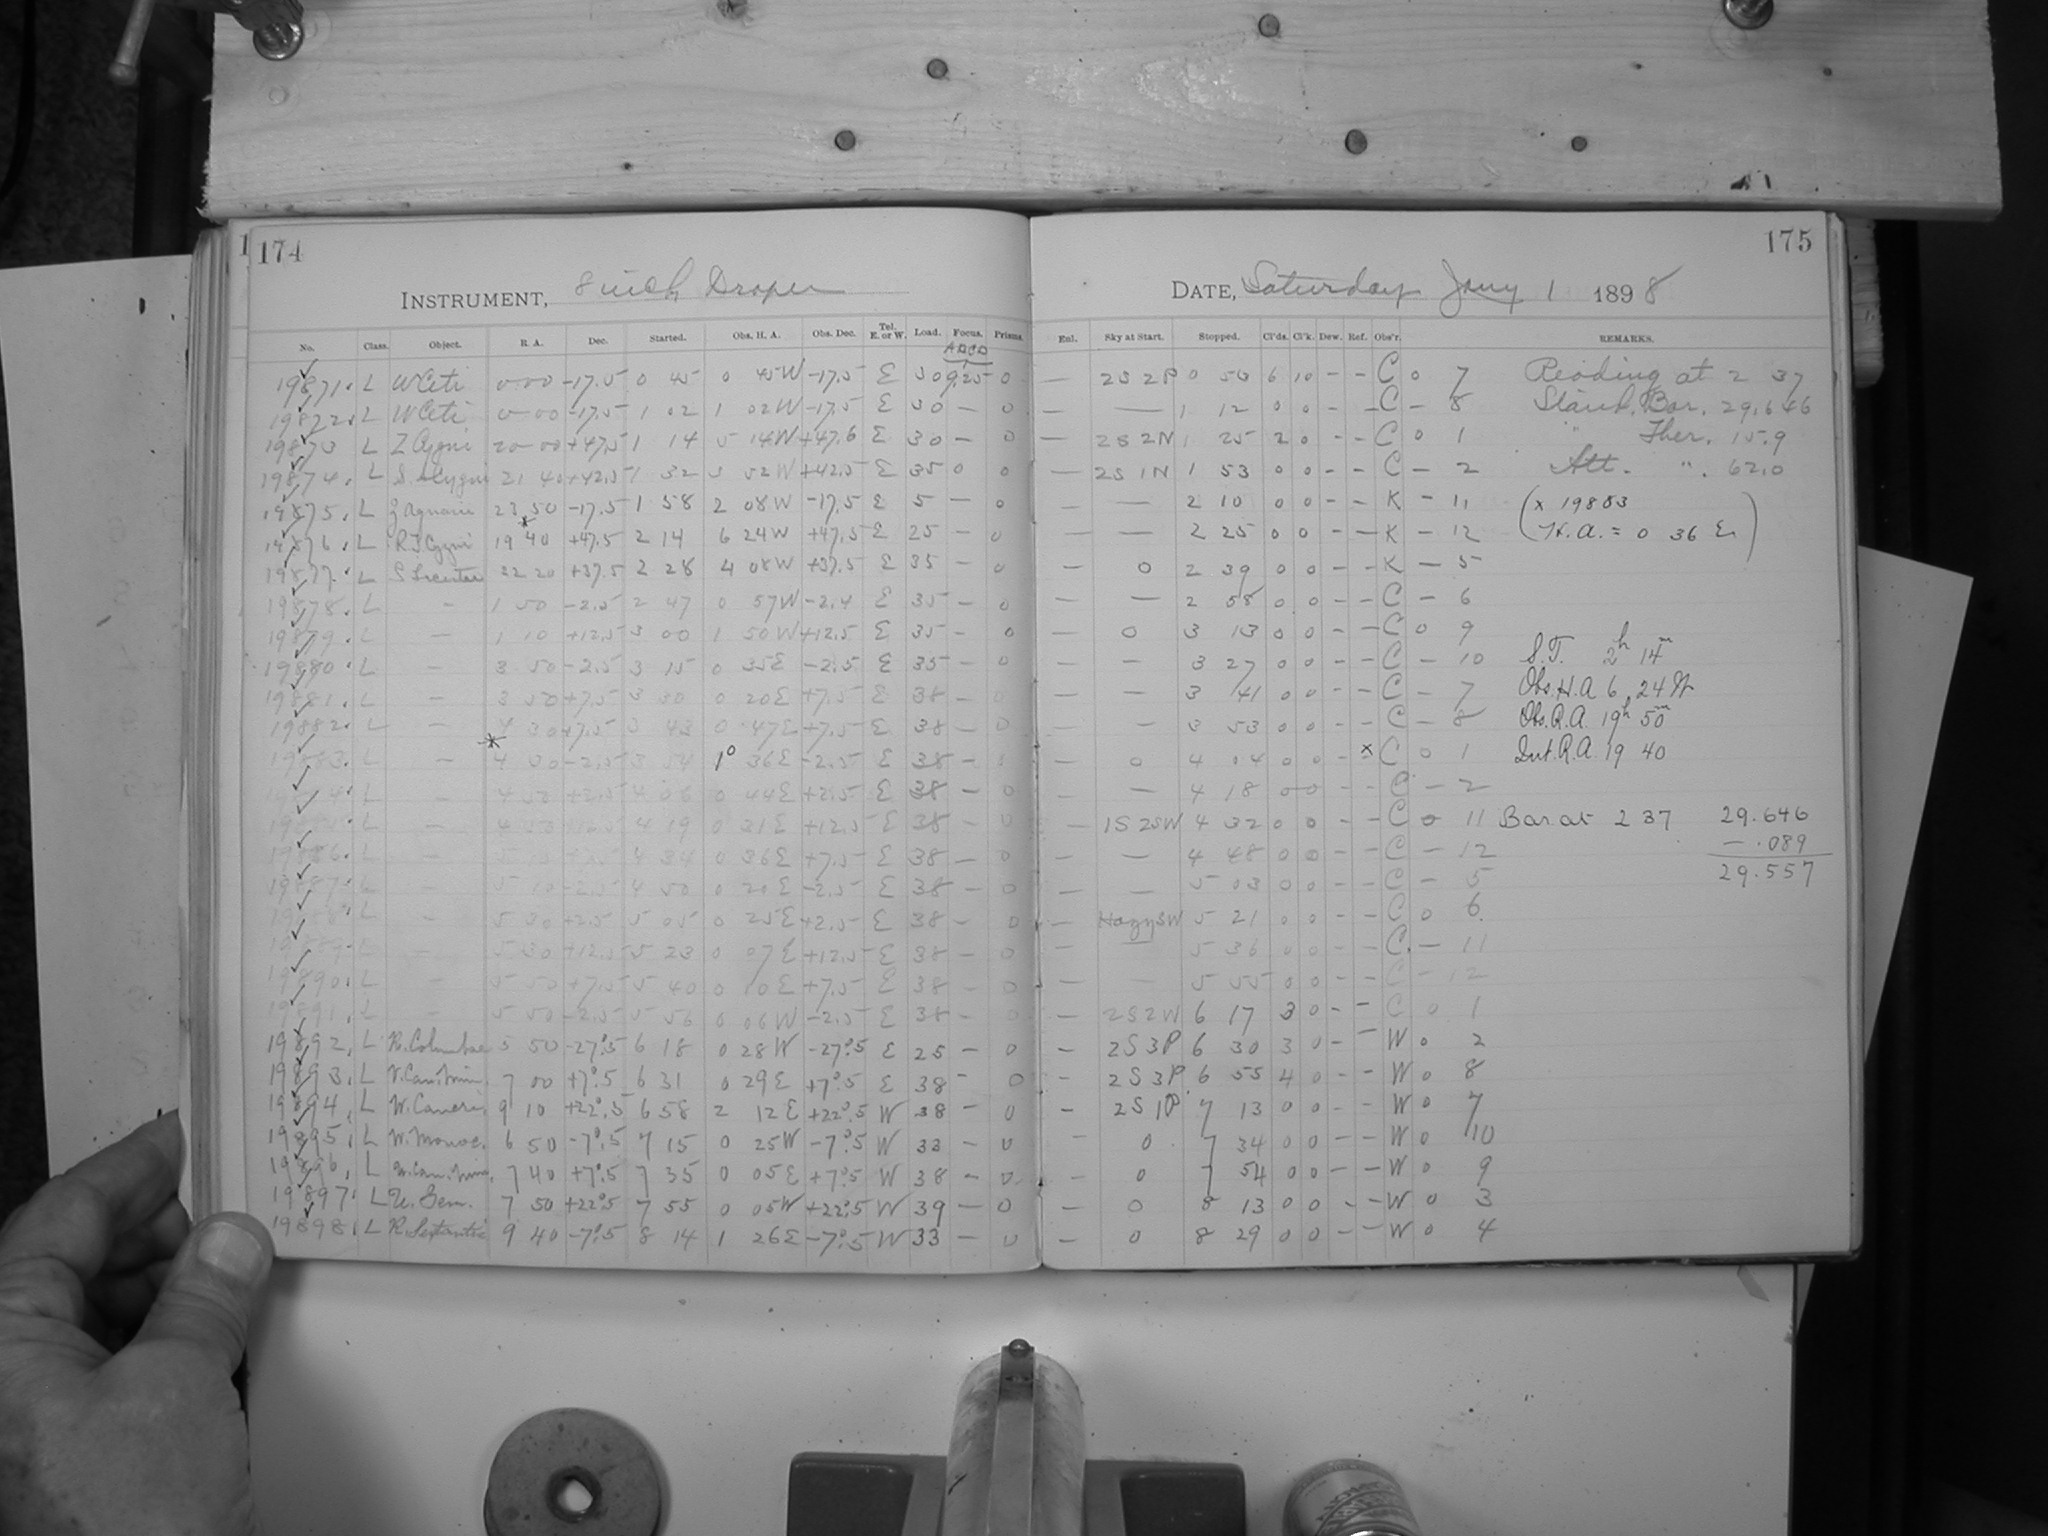 174
INSTRUMENT, 8 inch Draper
No. Class. Object. R. A. Dec. Started. Obs. H. A. Obs. Dec. Tel. E. or W. Load. Focus. Prisms.
ABCD
19871. L W Ceti 0 00 -17.5 0 45 0 45W -17.5 E 30 9.25 0
19872. L W Ceti 0 00 -17.5 1 02 1 02W -17.5 E 30 — 0
19873 L Z Cygni 20 00 +47.5 1 14 5 14W +47.6 E 30 — 0
19874. L 21 40 +42.5 1 32 3 52W +42.5 E 35 0 0
19875. L 23 50 -17.5 1 58 2 08W -17.5 E 5 — 0
19876. L 19 40 +47.5 2 14 6 24W +47.5 E 25 — 0
19877. L 22 20 +37.5 2 28 4 08W +37.5 E 35 — 0
19878. L — 1 50 -2.5 2 47 0 57W -2.4 E 35 — 0
19879. L — 1 10 +12.5 3 00 1 50W +12.5 E 35 - 0
19880. L — 3 50 -2.5 3 15 0 35E -2.5 E 35 — 0
19881. L — 3 50 +7.5 3 30 0 20E +7.5 E 38 - 0
19882. L — 4 30 +7.5 3 43 0 47E +7.5 E 38 — 0
19883. L — 4 30 -2.5 3 54 36E -2.5 E 38 -
L — 4 50 +2.5 4 06 0 44E +2.5 E 38 - 0
L — 4 50 +12.5 4 19 0 31E +12.5 E 38 - 0
19886. L — +7.5 4 34 0 36E +7.5 E 38 — 0
19887. L — 5 10 -2.5 4 50 0 20E -2.5 E 38 — 0
19888. L - 5 30 +2.5 5 05 0 25E +2.5 E 38 — 0
19889. L - 5 30 +12.5 5 23 0 07E +12.5 E 38 — 0
19890. L - 5 50 +7.5 5 40 0 10E +7.5 E 38 — 0
19891. L - 5 50 -2.5 5 56 0 06W -2.5 E 38 — 0
19892. L R. Columbae 5 50 -27°.5 6 18 0 28W -27°.5 E 25 — 0
19893. L V. Can. Min. 7 00 +7°.5 6 31 0 29E +7°.5 E 38 - 0
19894. L W. Cancri. 9 10 +22°.5 6 58 2 12E +22°.5 W 38 — 0
19895. L W. Monoc. 6 50 -7°.5 7 15 0 25W -7°.5 W 33 — 0
19896. L Can. Min. 7 40 +7°.5 7 35 0 05E +7°.5 W 38 — 0
19897. L U. Gem. 7 50 +22°.5 7 55 0 05W +22°.5 W 39 — 0
19898. L R. Sextantis 9 40 -7°.5 8 14 1 26E -7°.5 W 33 — 0
175
DATE, Saturday Jany 1 1898
Enl. Sky at Start. Stopped. Cl'ds. Cl'k. Dew. Ref. Obs'r. REMARKS.
— 2S 2P 0 53 6 10 - - C 0 7 Reading at 2 37
— 1 12 0 0 - - C - 8 Stand. Bar. 29.646
— 2S 2N 1 25 2 0 - - C 0 1 " Ther. 15.9
— 2S 1N 1 53 0 0 - - C - 2 Att. " 62.0
— — 2 10 0 0 - - K - 11 (x 19883
— — 2 25 0 0 - - K - 12 H.A. = 0 36 E)
— 0 2 39 0 0 - - K - 5
— — 2 58 0 0 - - C - 6
— 0 3 13 0 0 - - C 0 9
— — 3 27 0 0 - - C - 10 S.T. 2h 14m
— — 3 41 0 0 - - C - 7 Obs. H.A 6 24 W
— — 3 53 0 0 - - C - 8 Obs. R.A. 19h 50m
— 0 4 04 0 0 - x C 0 1 Int. R.A. 19 40
— — 4 18 0 0 - - C - 2
— 1S 2SW 4 32 0 0 - - C 0 11 Bar at 2 37 29.646
— — 4 48 0 0 - - C - 12 - .089
— — 5 03 0 0 - - C - 5 29.557
— Hazy SW 5 21 0 0 - - C 0 6
— — 5 36 0 0 - - C - 11
— — 5 55 0 0 - - C - 12
— 2S 2W 6 17 3 0 - - C 0 1
— 2S 3P 6 30 3 0 - - W 0 2
— 2S 3P 6 55 4 0 - - W 0 8
— 2S 1P 7 13 0 0 - - W 0 7
- 0 7 34 0 0 - - W 0 10
— 0 7 54 0 0 - - W 0 9
— 0 8 13 0 0 - - W 0 3
— 0 8 29 0 0 - - W 0 4